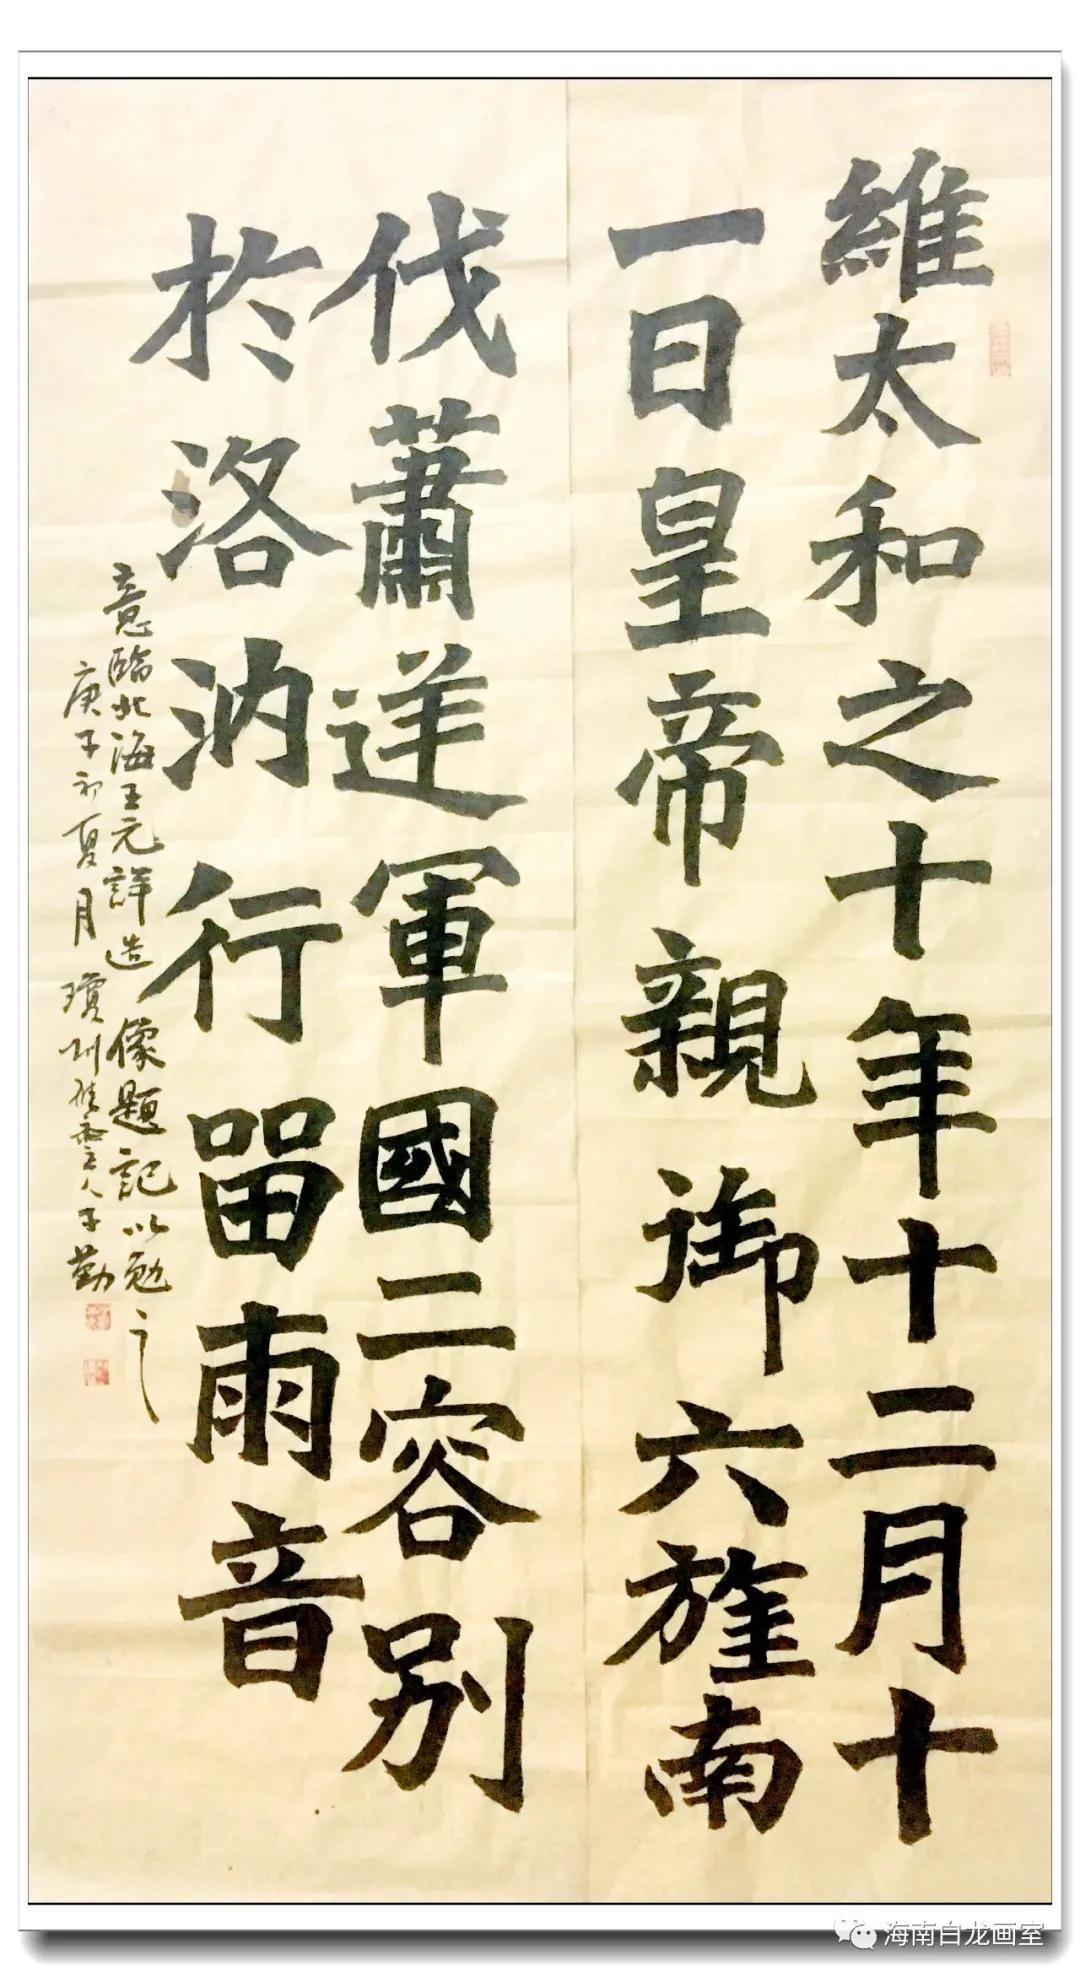 維太和之十年十二月十
一日皇帝親御六旌南
伐蕭逆軍國二容別
於洛汭行留雨音
意臨北海王元詳造像題記以勉之
庚子初夏月瓊州雲人子勤
海南白龙画室